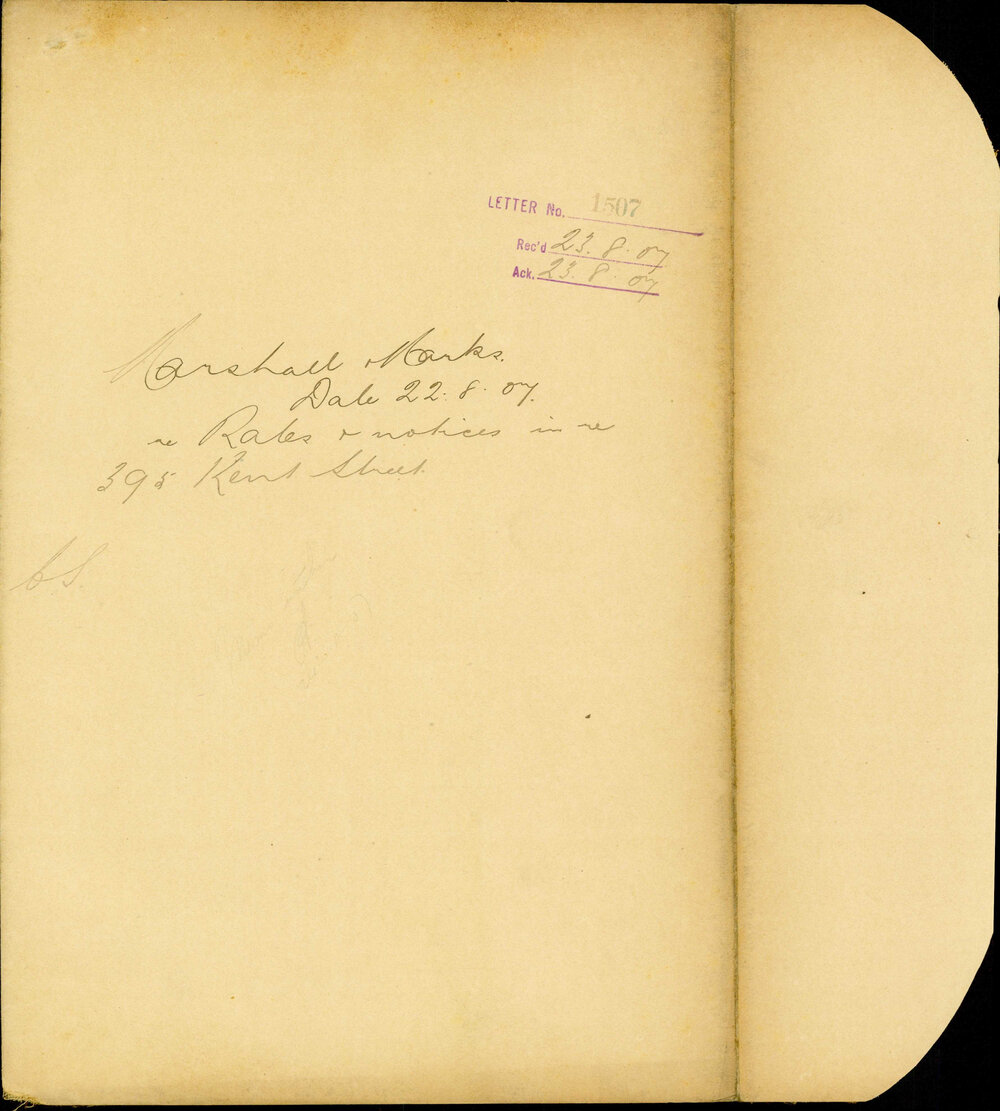 LETTER No. 1507
Rec'd 23.8.07
Ack. 23.8.07
Marshall Marks.
Date 22.8.07.
re Rates & notices in re
395 Kent Street.